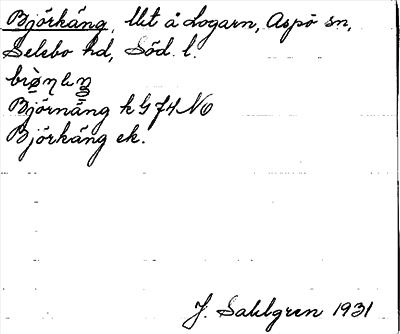 Björkäng, llt å Logarn, Aspö sn,
Selebo hd, Söd. l.
Björnäng k G 74 NO
Björkäng ek.
J. Sahlgren 1931